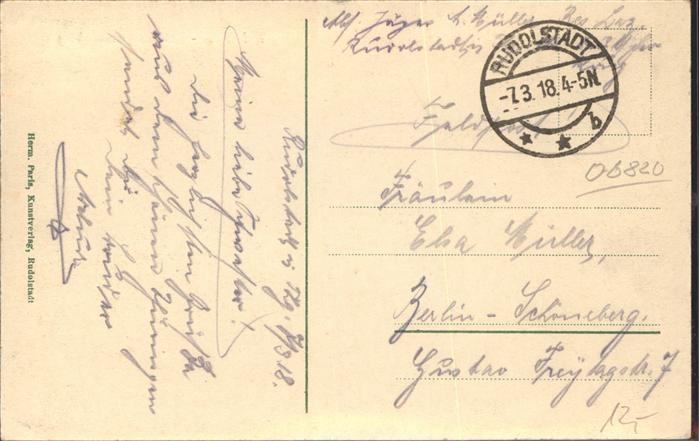 Abs. Jäger A. Müller Res. Laz.
Rudolstadt
RUDOLSTADT
-7.3.18.4-5N.
b
Feldpost
Ob820
Fräulein
Elsa Müller,
Berlin-Schöneberg.
Gustav Freytagstr. 7
12,-
Rudolstadt i. Thg. 7/3.18.
Meine liebe Schwester!
Die herzlichsten Grüße
aus dem schönen Thüringen
sendet dir
dein Bruder
Arthur
Herm. Paris, Kunstverlag, Rudolstadt